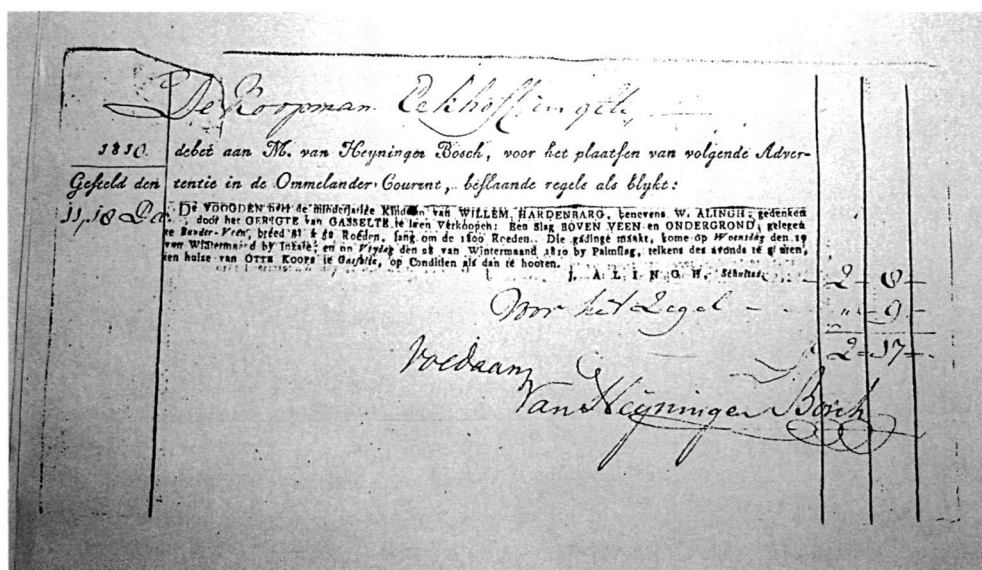 De Koopman
1810. debet aan M. van Heyninger Bosch, voor het plaatsen van volgende Adver-
Gesteld den tentie in de Ommelander Courent, beslaande regels als blykt:
11/18 De VOOGDEN over de minderjarige Kinderen van WILLEM HARDENBARG, benevens W. ALINGH, gedenken
door het GERIGTE van GASSELTE te laten Verkoopen: Een Slag BOVEN VEEN en ONDERGROND, gelegen
te breed à Roeden, lang om de 1800 Roeden. Die gadinge maakt, kome op Woensdag den 19
van Wintermaand by Inzate, en op Vrydag den 28 van Wintermaand 1810 by Palmslag, telkens des avonds te uren,
ten huize van OTTE KOOPS te Gasselte, op Conditien als dan te hooren.
J. ALINGH, Schultes. 2 - 8 -
Voor het Zegel - „ - 9 -
2 - 17 -
Voldaan
Van Heyninger Bosch